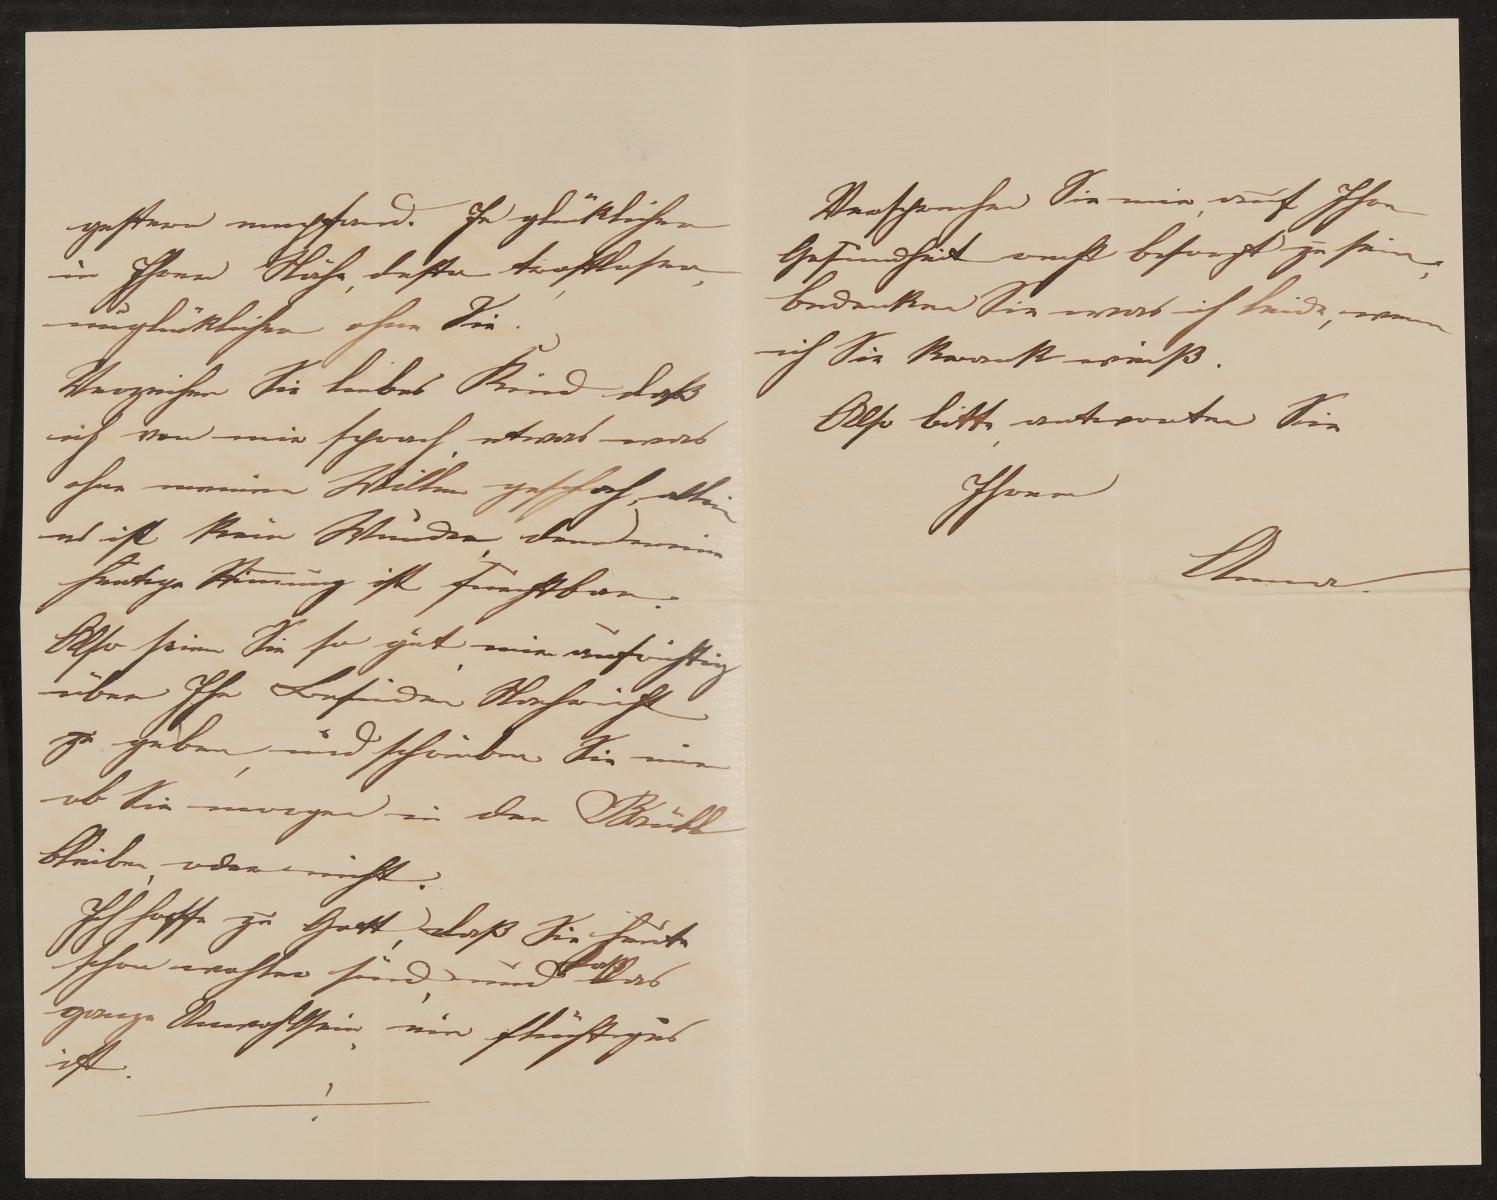 gestern empfand. Je glücklicher
in Ihrer Nähe, desto trostloser,
unglücklicher ohne Sie.
Verzeihen Sie liebes Kind daß
ich von mir sprach, etwas was
ohne meinen Willen geschah, allein
es ist kein Wunder, denn meine
heutige Stimmung ist furchtbar.
Also seien Sie so gut, mir aufrichtig
über Ihr Befinden Nachricht
zu geben, und schreiben Sie mir
ob Sie morgen in der Brühl
bleiben, oder nicht.
Ich hoffe zu Gott, daß Sie heute
schon wohler sind, und daß das
ganze Unwohlsein, ein flüchtiges
ist.
Versprechen Sie mir, auf Ihre
Gesundheit recht besorgt zu sein,
bedenken Sie was ich leide, wenn
ich Sie krank weiß.
Also bitte, antworten Sie
Ihrer
Anna.